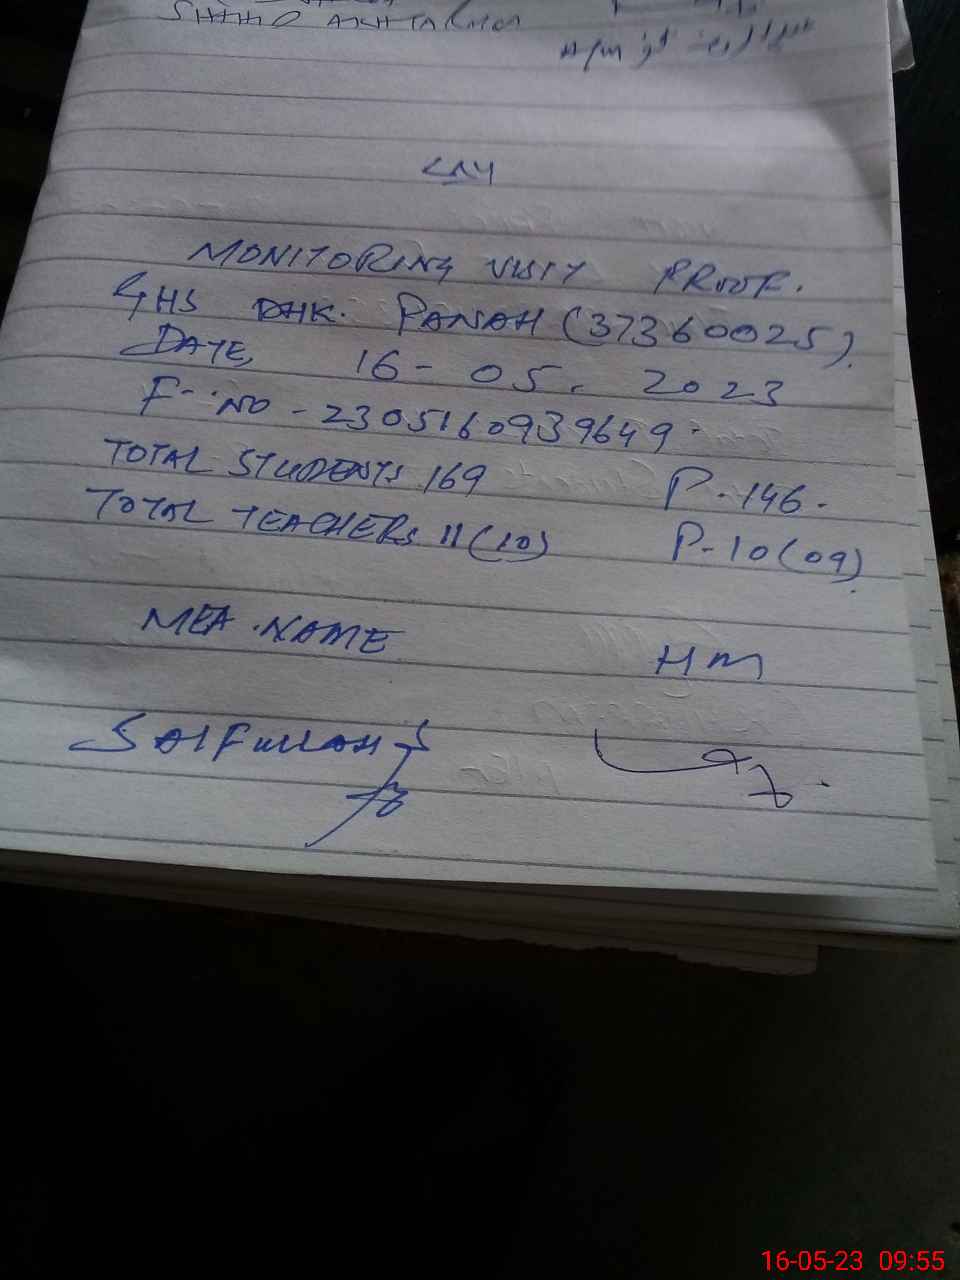 SHAHID AKHTAR
MONITORING VISIT PROOF.
GHS DHK. PANAH (37360025).
DATE, 16-05. 2023
F. NO - 2305160939649.
TOTAL STUDENTS 169 P-146.
TOTAL TEACHERS 11(10) P-10(09).
MEA. NAME HM
SAIFULLAH
16-05-23 09:55